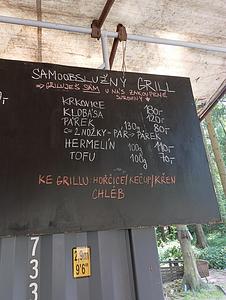 SAMOOBSLUŽNÝ GRILL
⇒ GRILUJEŠ SÁM U NÁS ZAKOUPENÉ
SUROVINY
KRKOVICE 130,-
KLOBÁSA 120,-
PÁREK 130g 80,-
⇐ 2 NOŽKY = PÁR ⇒ PÁREK
HERMELÍN 100g 110,-
TOFU 100g 70,-
KE GRILLU: HOŘČICE/KEČUP/KŘEN
CHLÉB
733
2,9m
9'6"